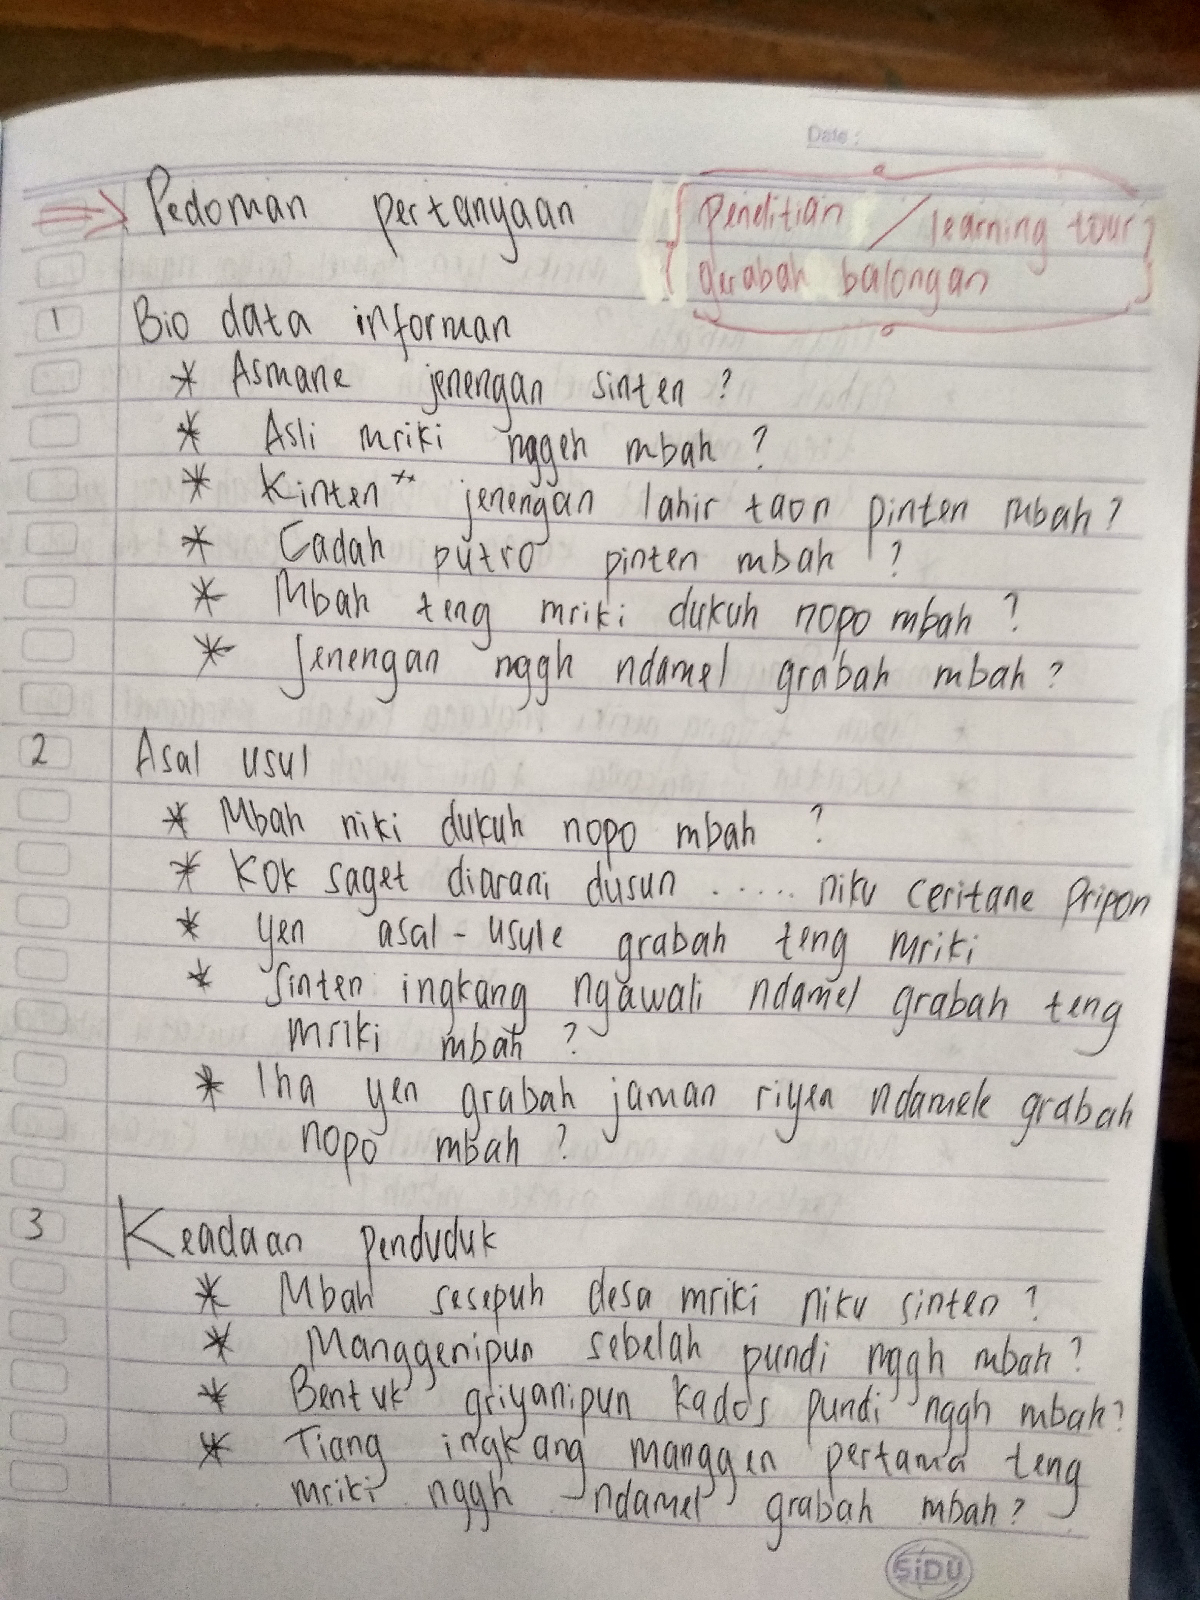 Date :
⇒ Pedoman pertanyaan
{ Penelitian / learning tour }
{ gerabah balongan }
1 Bio data informan
* Asmane jenengan sinten ?
* Asli mriki nggeh mbah ?
* Kinten" jenengan lahir taon pinten mbah ?
* Gadah putro pinten mbah ?
* Mbah teng mriki dukuh nopo mbah ?
* Jenengan nggh ndamel grabah mbah ?
2 Asal usul
* Mbah niki dukuh nopo mbah ?
* Kok saget diarani dusun ...... niku ceritane Pripon
* yen asal-usule grabah teng mriki
* Sinten ingkang ngawali ndamel grabah teng
mriki mbah ?
* lha yen grabah jaman riyen ndamele grabah
nopo mbah ?
3 Keadaan penduduk
* Mbah sesepuh desa mriki niku sinten ?
* Manggenipun sebelah pundi nggh mbah ?
* Bentuk griyanipun kados pundi nggh mbah ?
* Tiang ingkang manggen pertama teng
mriki nggh ndamel grabah mbah ?
SiDU